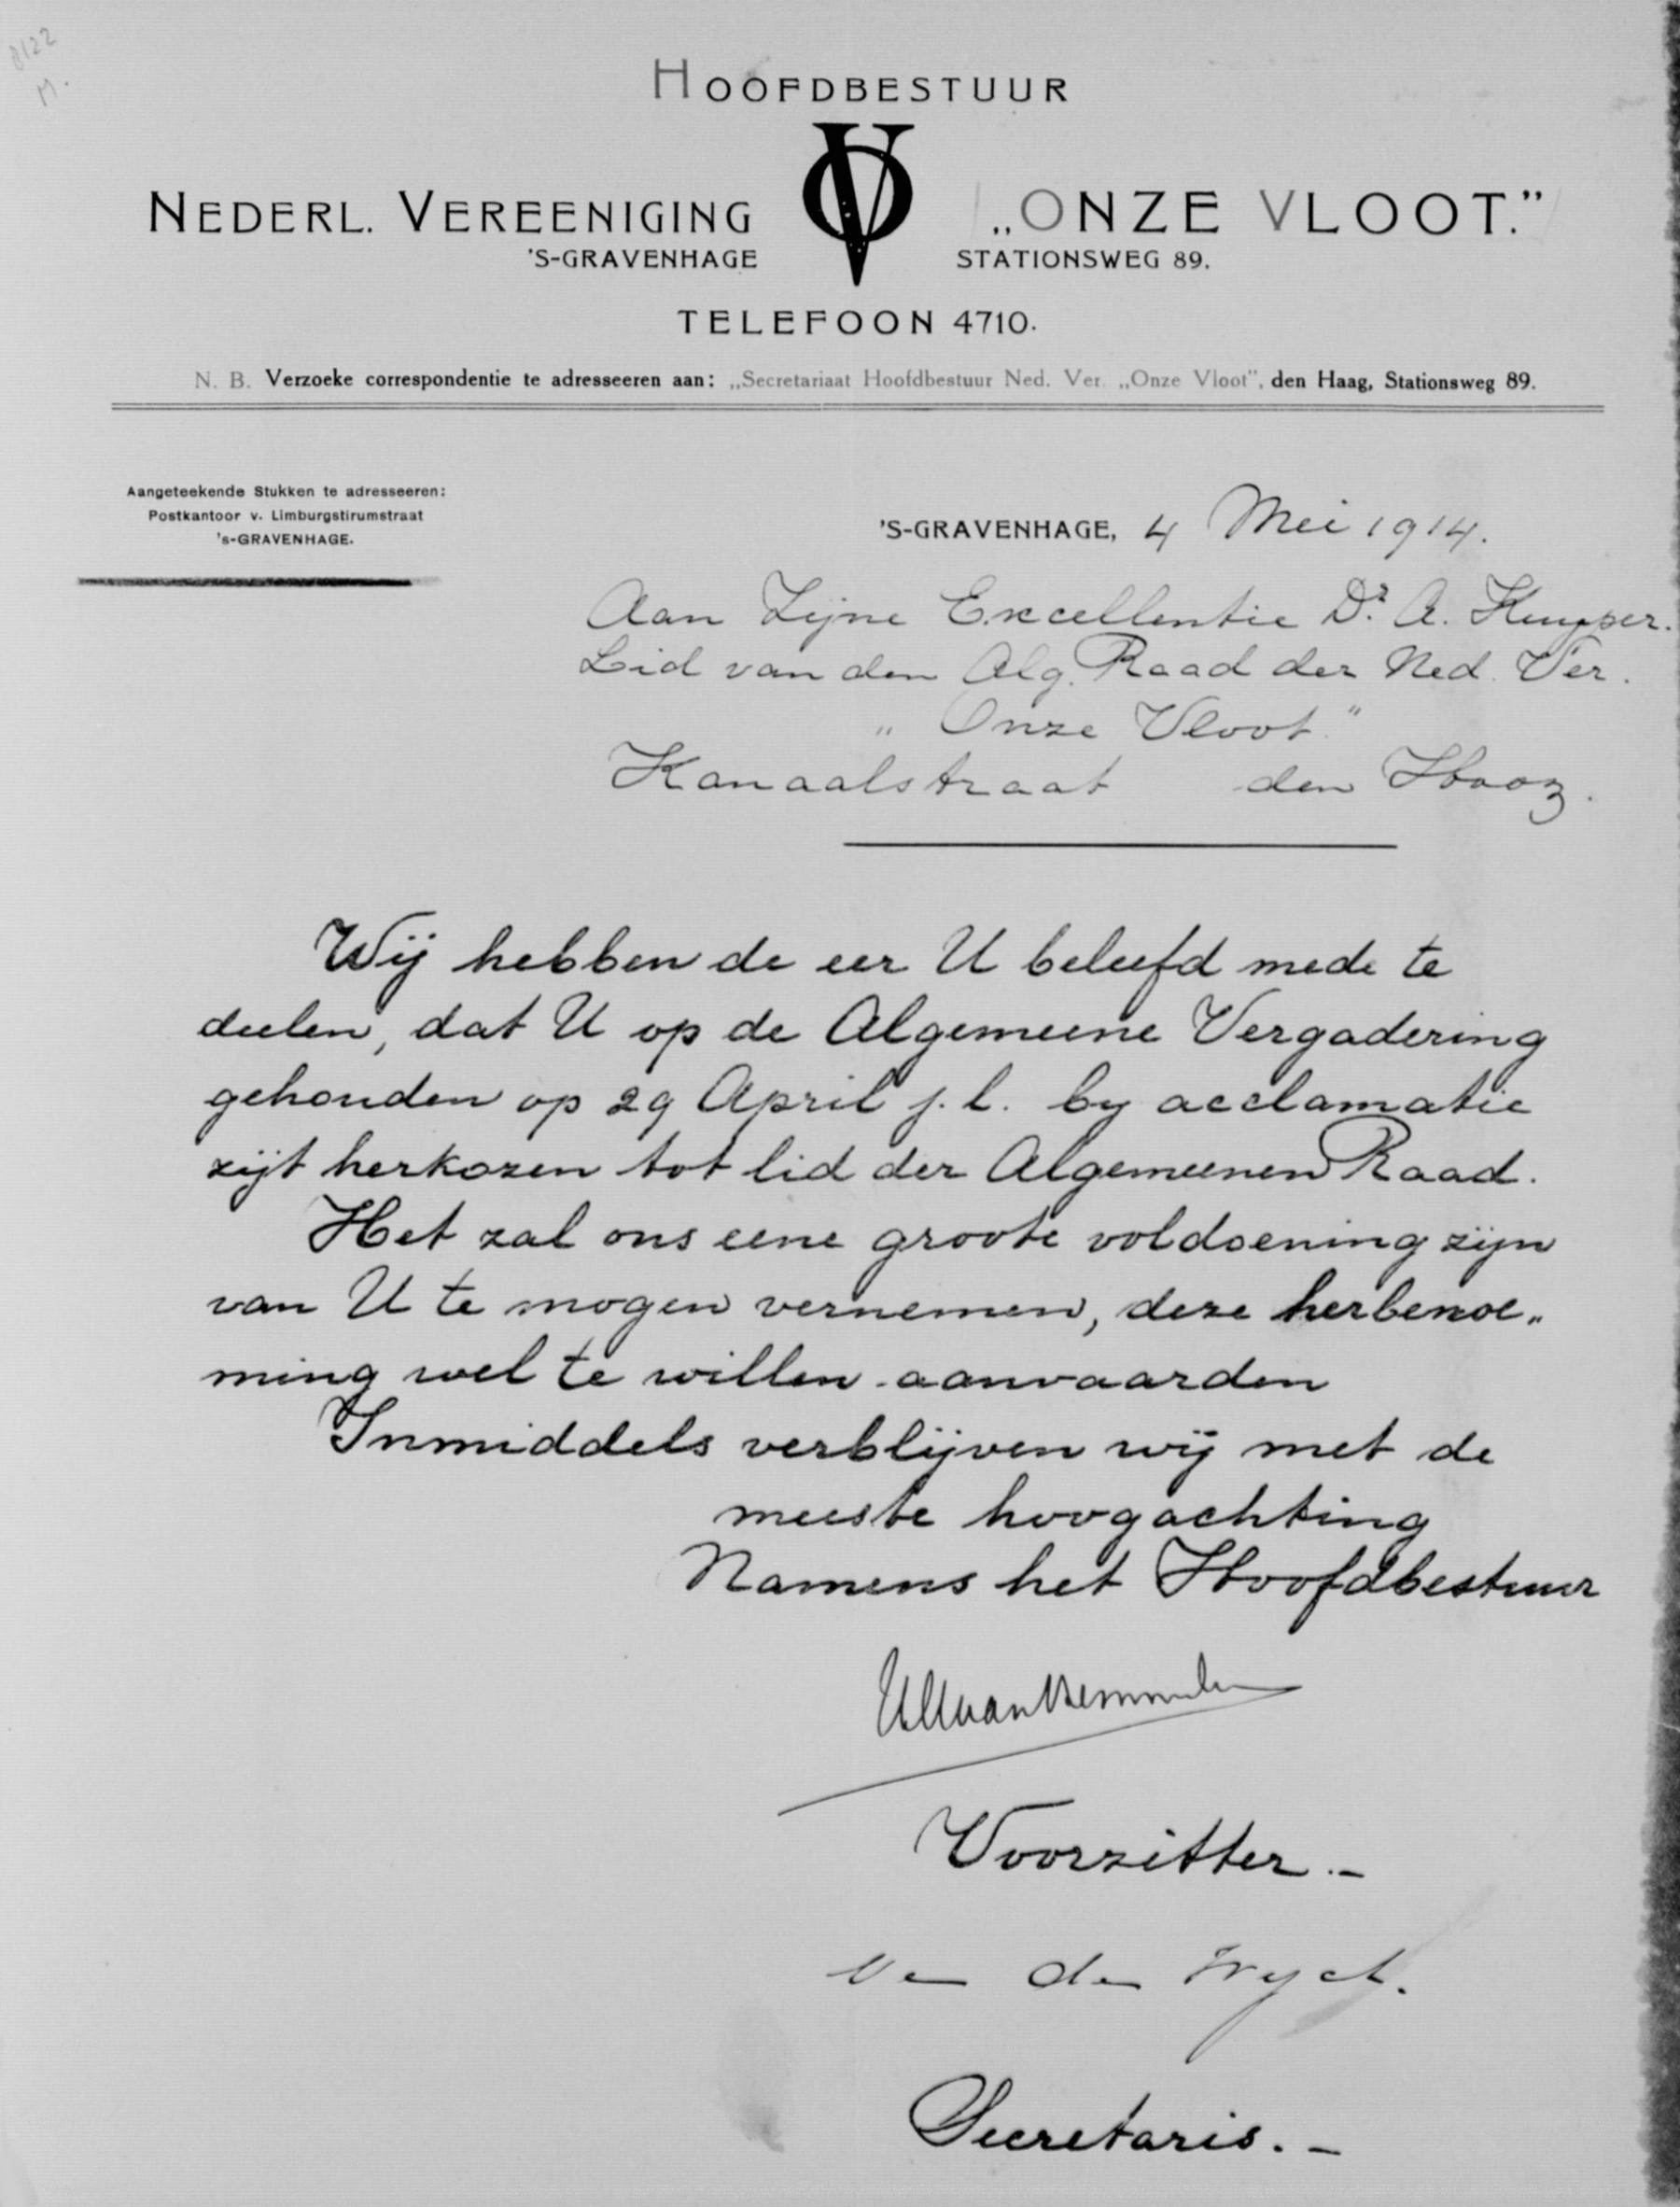 8122
M.
HOOFDBESTUUR
NEDERL. VEREENIGING OV „ONZE VLOOT.”
'S-GRAVENHAGE STATIONSWEG 89.
TELEFOON 4710.
N. B. Verzoeke correspondentie te adresseeren aan: „Secretariaat Hoofdbestuur Ned. Ver. „Onze Vloot”, den Haag, Stationsweg 89.
Aangeteekende Stukken te adresseeren:
Postkantoor v. Limburgstirumstraat
's-GRAVENHAGE.
'S-GRAVENHAGE, 4 Mei 1914.
Aan Zijne Excellentie Dr. A. Kuyper.
Lid van den Alg. Raad der Ned. Ver.
„Onze Vloot.”
Kanaalstraat den Haag.
Wij hebben de eer U beleefd mede te
deelen, dat U op de Algemeene Vergadering
gehouden op 29 April j.l. by acclamatie
zijt herkozen tot lid der Algemeenen Raad.
Het zal ons eene groote voldoening zijn
van U te mogen vernemen, deze herbenoe„
ming wel te willen aanvaarden
Inmiddels verblijven wij met de
meeste hoogachting
Namens het Hoofdbestuur
Voorzitter.-
Secretaris.-